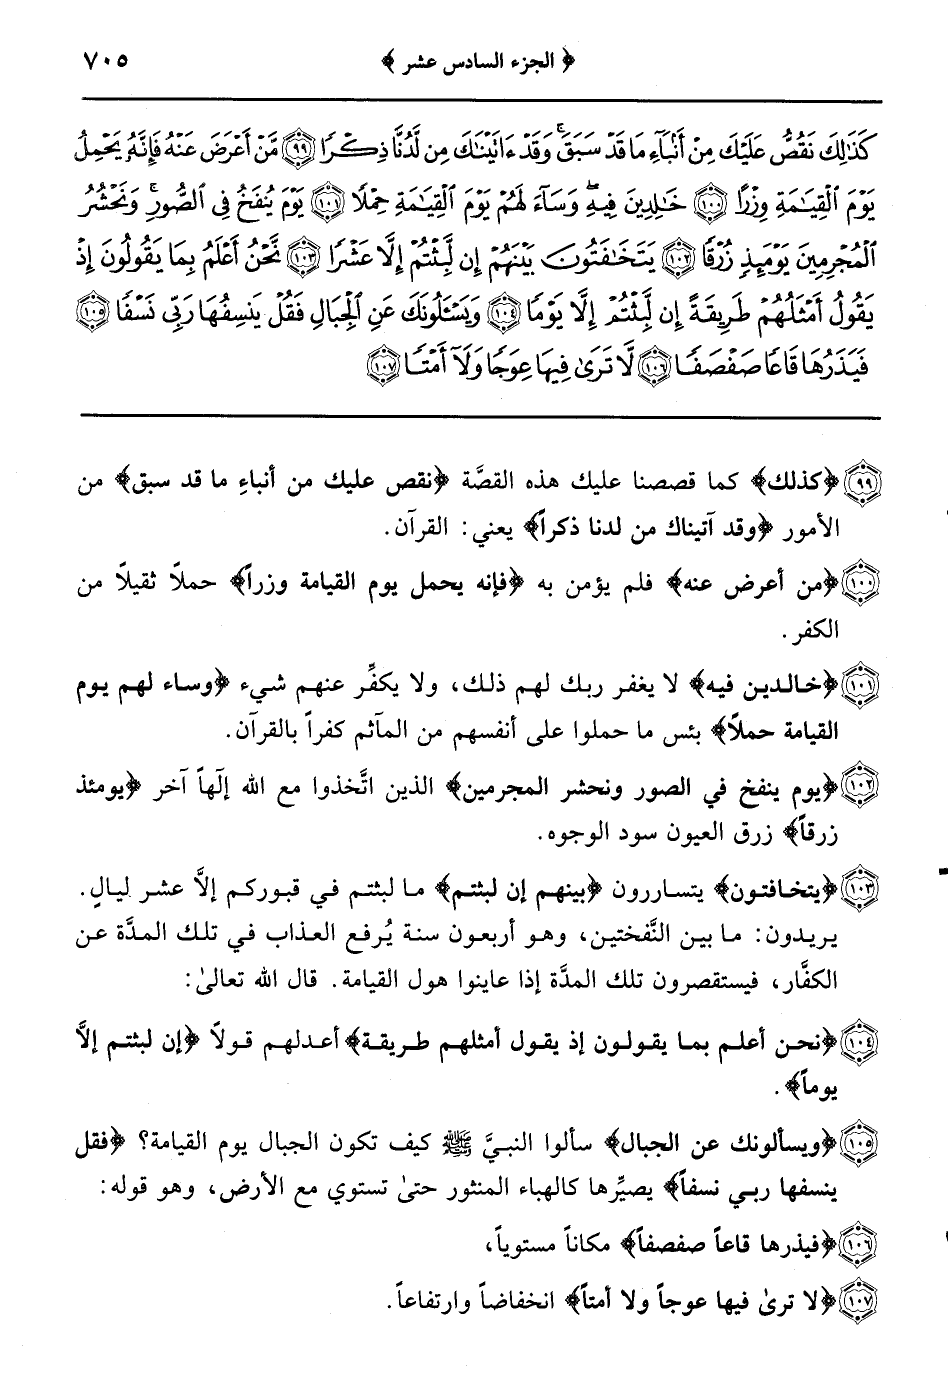 ﴿ الجزء السادس عشر ﴾ ٧٠٥
كَذَٰلِكَ نَقُصُّ عَلَيْكَ مِنْ أَنۢبَآءِ مَا قَدْ سَبَقَ ۚ وَقَدْ ءَاتَيْنَٰكَ مِن لَّدُنَّا ذِكْرًا ٩٩ مَّنْ أَعْرَضَ عَنْهُ فَإِنَّهُۥ يَحْمِلُ
يَوْمَ ٱلْقِيَٰمَةِ وِزْرًا ١٠٠ خَٰلِدِينَ فِيهِ ۖ وَسَآءَ لَهُمْ يَوْمَ ٱلْقِيَٰمَةِ حِمْلًا ١٠١ يَوْمَ يُنفَخُ فِى ٱلصُّورِ ۚ وَنَحْشُرُ
ٱلْمُجْرِمِينَ يَوْمَئِذٍ زُرْقًا ١٠٢ يَتَخَٰفَتُونَ بَيْنَهُمْ إِن لَّبِثْتُمْ إِلَّا عَشْرًا ١٠٣ نَّحْنُ أَعْلَمُ بِمَا يَقُولُونَ إِذْ
يَقُولُ أَمْثَلُهُمْ طَرِيقَةً إِن لَّبِثْتُمْ إِلَّا يَوْمًا ١٠٤ وَيَسْـَٔلُونَكَ عَنِ ٱلْجِبَالِ فَقُلْ يَنسِفُهَا رَبِّى نَسْفًا ١٠٥
فَيَذَرُهَا قَاعًا صَفْصَفًا ١٠٦ لَّا تَرَىٰ فِيهَا عِوَجًا وَلَآ أَمْتًا ١٠٧
٩٩ ﴿كذلك﴾ كما قصصنا عليك هذه القصَّة ﴿نقص عليك من أنباءِ ما قد سبق﴾ من
الأمور ﴿وقد آتيناك من لدنا ذكراً﴾ يعني: القرآن.
١٠٠ ﴿من أعرض عنه﴾ فلم يؤمن به ﴿فإنه يحمل يوم القيامة وزراً﴾ حملاً ثقيلاً من
الكفر.
١٠١ ﴿خالدين فيه﴾ لا يغفر ربك لهم ذلك، ولا يكفِّر عنهم شيء ﴿وساء لهم يوم
القيامة حملاً﴾ بئس ما حملوا على أنفسهم من المآثم كفراً بالقرآن.
١٠٢ ﴿يوم ينفخ في الصور ونحشر المجرمين﴾ الذين اتَّخذوا مع الله إلَهاً آخر ﴿يومئذ
زرقاً﴾ زرق العيون سود الوجوه.
١٠٣ ﴿يتخافتون﴾ يتساررون ﴿بينهم إن لبثتم﴾ ما لبثتم في قبوركم إلاَّ عشر ليالٍ.
يريدون: ما بين النَّفختين، وهو أربعون سنة يُرفع العذاب في تلك المدَّة عن
الكفَّار، فيستقصرون تلك المدَّة إذا عاينوا هول القيامة. قال الله تعالىٰ:
١٠٤ ﴿نحن أعلم بما يقولون إذ يقول أمثلهم طريقة﴾ أعدلهم قولاً ﴿إن لبثتم إلاَّ
يوماً﴾.
١٠٥ ﴿ويسألونك عن الجبال﴾ سألوا النبيَّ ﷺ كيف تكون الجبال يوم القيامة؟ ﴿فقل
ينسفها ربي نسفاً﴾ يصيِّرها كالهباء المنثور حتىٰ تستوي مع الأرض، وهو قوله:
١٠٦ ﴿فيذرها قاعاً صفصفاً﴾ مكاناً مستوياً،
١٠٧ ﴿لا ترىٰ فيها عوجاً ولا أمتاً﴾ انخفاضاً وارتفاعاً.